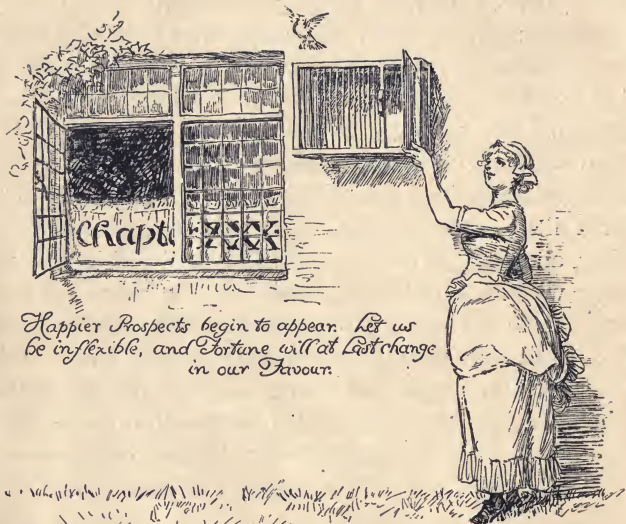 Chapte XXX
Happier Prospects begin to appear. Let us
be inflexible, and Fortune will at Last change
in our Favour.